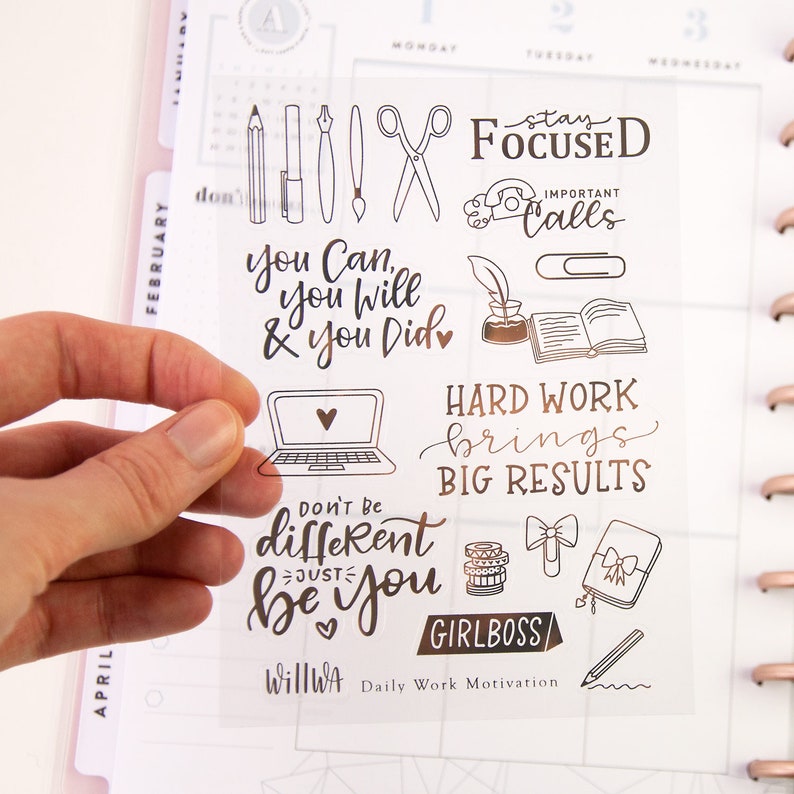 JANUARY
A
1
2
3
MONDAY
TUESDAY
WEDNESDAY
stay
FOCUSED
don'
IMPORTANT
Calls
FEBRUARY
you Can,
you Will
& you Did
HARD WORK
brings
BIG RESULTS
DON'T BE
different
JUST
be you
GIRLBOSS
WillWA
Daily Work Motivation
APRIL